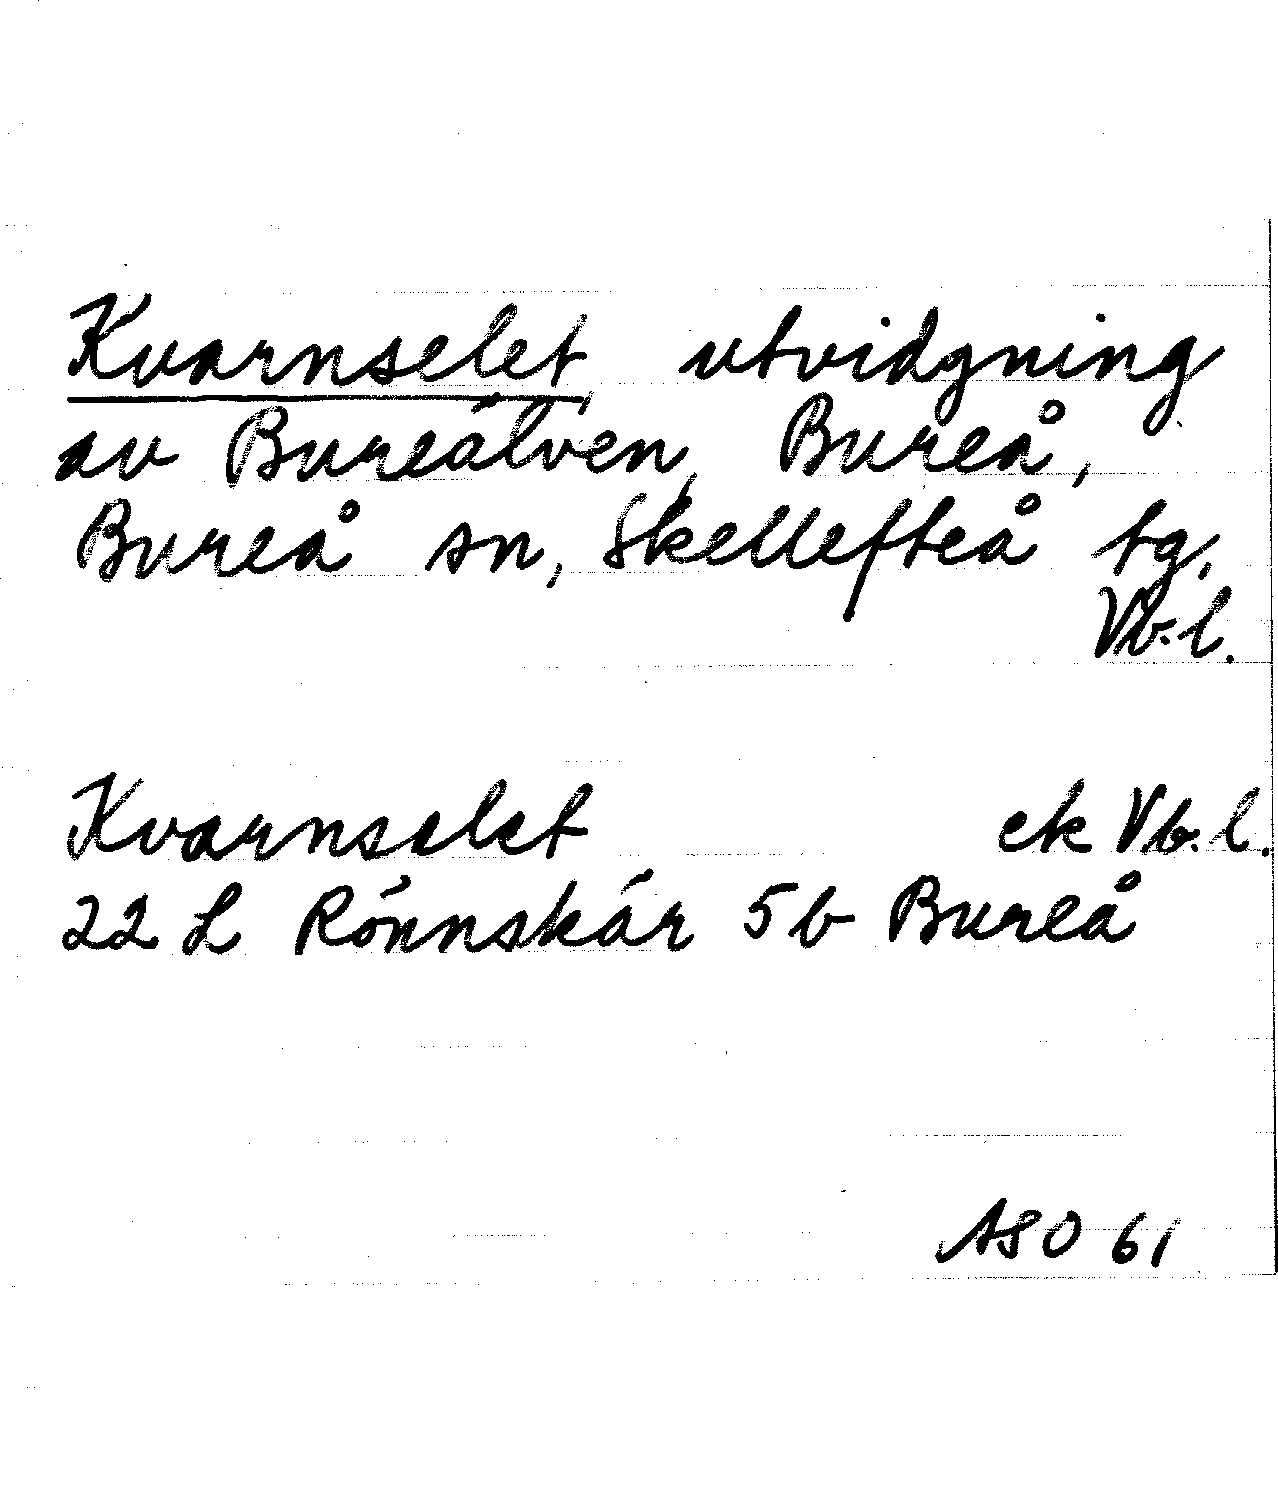 Kvarnselet, utvidgning
av Bureälven, Bureå,
Bureå sn, Skellefteå tg,
Vb.l.
Kvarnselet ek Vb.l.
22 L Rönnskär 5b Bureå
ASO 61